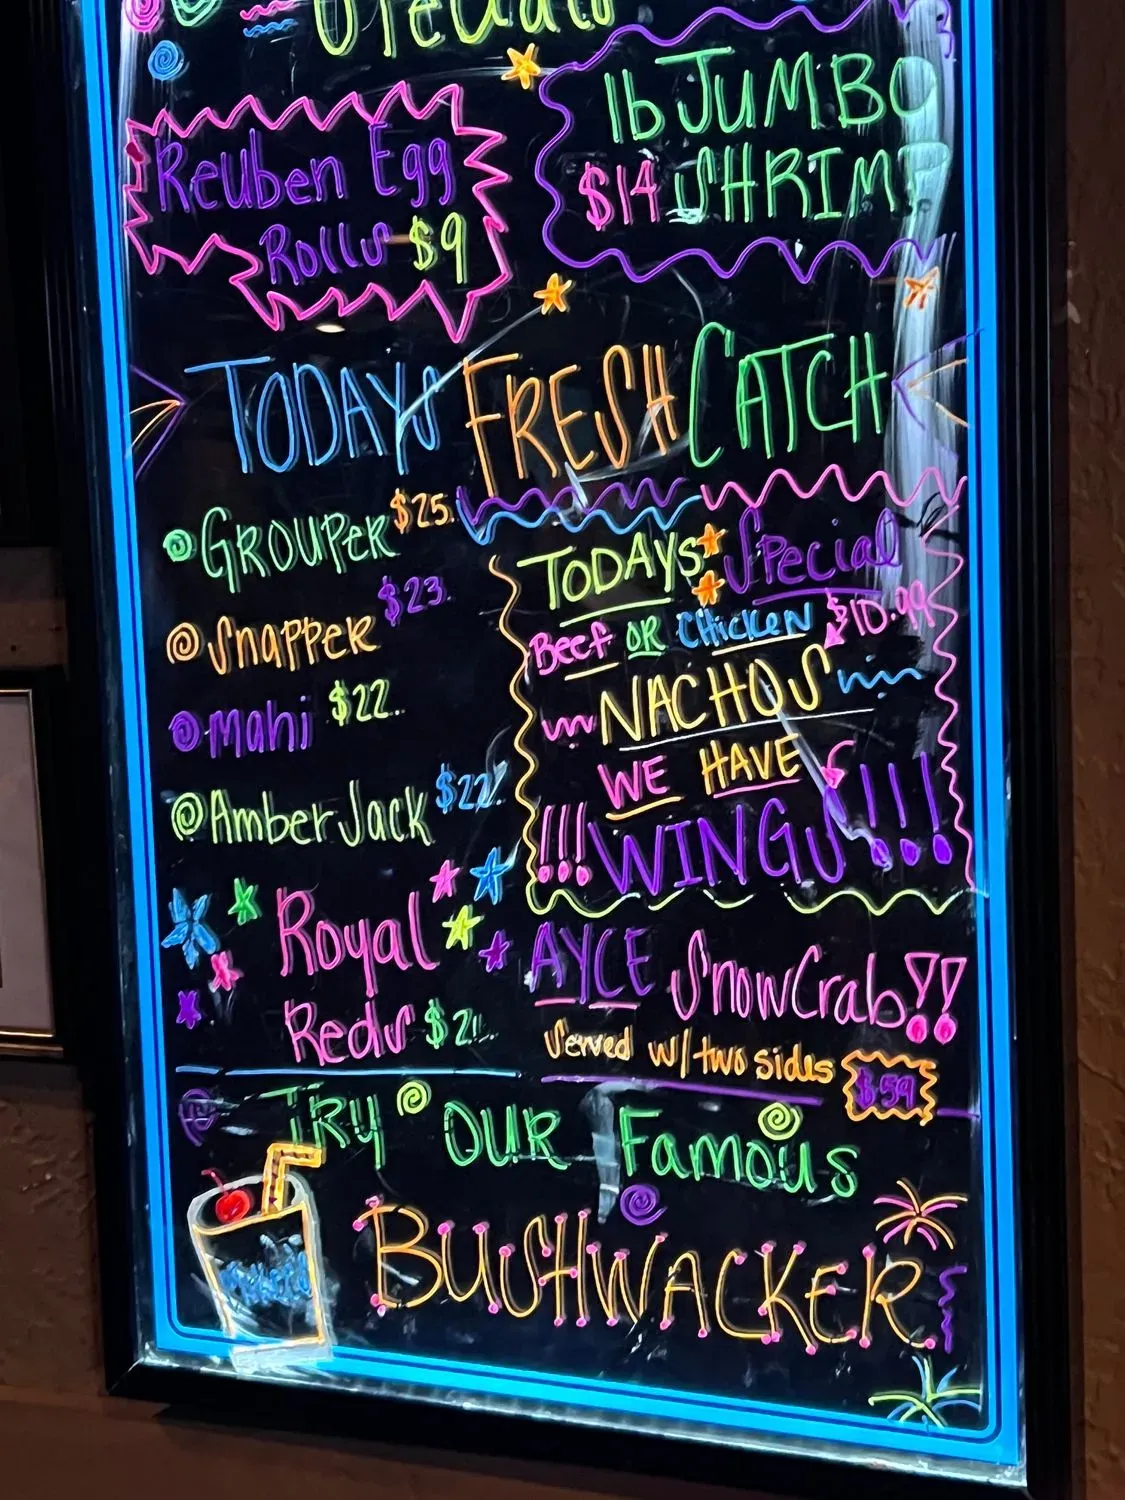 1lb JUMBO
$14 SHRIMP
Reuben Egg
Rolls $9
TODAYS FRESH CATCH
GROUPER $25.
Snapper $23.
mahi $22..
Amber Jack $22.
Royal
Reds
TODAYS Special
Beef OR Chicken $10.99
NACHOS
WE HAVE
!!! WINGS !!!
AYCE SnowCrab!!
Served w/ two sides $59
TRY OUR Famous
BUSHWACKER